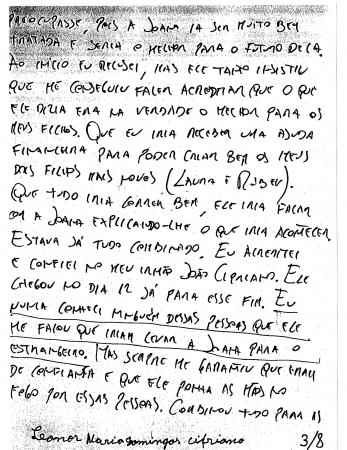 PREOCUPASSE, POIS A JOANA IA SER MUITO BEM
TRATADA E SERIA O MELHOR PARA O FUTURO DELA.
AO INÍCIO EU RECUSEI, MAS ELE TANTO INSISTIU
QUE ME CONSEGUIU FAZER ACREDITAR QUE O QUE
ELE DIZIA ERA NA VERDADE O MELHOR PARA OS
MEUS FILHOS. QUE EU IRIA RECEBER UMA AJUDA
FINANCEIRA PARA PODER CRIAR BEM OS MEUS
DOIS FILHOS MAIS NOVOS (LAURA E RUBEN).
QUE TUDO IRIA CORRER BEM, ELE IRIA FALAR
COM A JOANA EXPLICANDO-LHE O QUE IRIA ACONTECER.
ESTAVA JÁ TUDO COMBINADO. EU ACREDITEI
E CONFIEI NO MEU IRMÃO JOÃO CIPRIANO. ELE
CHEGOU NO DIA 12 JÁ PARA ESSE FIM. EU
NUNCA CONHECI NINGUÉM DESSAS PESSOAS QUE ELE
ME FALOU QUE IRIAM LEVAR A JOANA PARA O
ESTRANGEIRO. MAS SEMPRE ME GARANTIU QUE ERAM
DE CONFIANÇA E QUE ELE PONHA AS MÃOS NO
FOGO POR ESSAS PESSOAS. COMBINOU TUDO PARA AS
Leonor Maria Domingos Cipriano 3/8